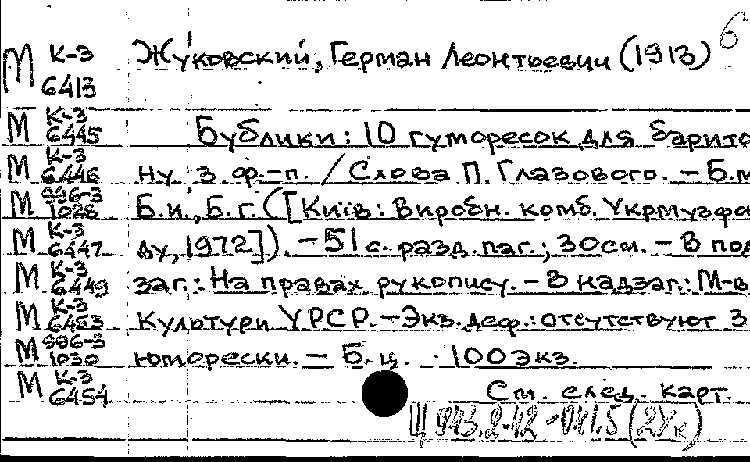 6
М К-3 6413 Жуковский, Герман Леонтьевич (1913)
М К-3 6445 Бублики: 10 гуморесок для барито
М К-3 6446 ну з ф.-п. / Слова П. Глазового. – Б.м
М 996-3 1028 Б.и., Б.г. ([Київ: Виробн. комб. Укрмузфо
М К-3 6447 ду, 1972]). – 51 с. разд. паг.; 30см. – В под
М К-3 6449 заг.: На правах рукопису. – В надзаг.: М-в
М К-3 6453 Культури УРСР. – Экз. деф.: отсутствуют 3
М 996-3 1030 юморески. – Б.ц. 100 экз.
М К-3 6454 См. след. карт
Щ 943.2-12